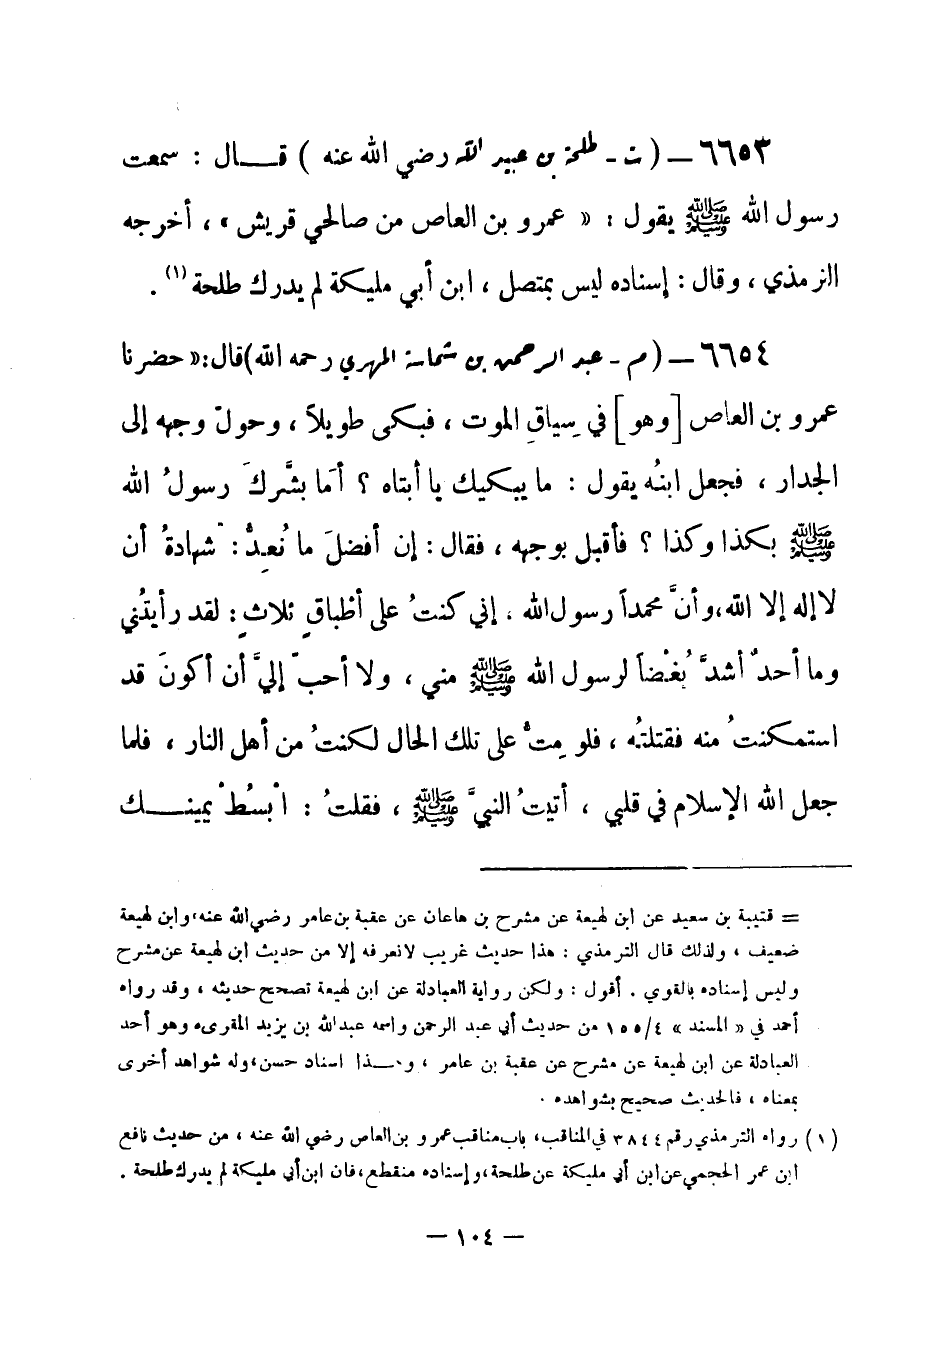 ٦٦٥٣ – ( ت - طلحة بن عبيد الله رضي الله عنه ) قال : سمعت
رسول الله ﷺ يقول : « عمرو بن العاص من صالحي قريش » ، أخرجه
الترمذي ، وقال : إسناده ليس بمتصل ، ابن أبي مليكة لم يدرك طلحة (١) .
٦٦٥٤ – ( م - عبد الرحمن بن شماسة المهري رحمه الله ) قال : « حضرنا
عمرو بن العاص [وهو] في سِياقِ الموت ، فبكى طويلاً ، وحولَ وجهه إلى
الجدار ، فجعل ابنُه يقول : ما يبكيك يا أبتاه ؟ أمَا بشَّركَ رسولُ الله
ﷺ بكذا وكذا ؟ فأقبل بوجهه ، فقال : إن أفضلَ ما نُعِدُّ : شهادةُ أن
لا إله إلا الله ، وأنَّ محمداً رسول الله . إني كنتُ على أطْباقٍ ثلاثٍ : لقد رأيتُني
وما أحدٌ أشدَّ بُغْضاً لرسول الله ﷺ مني ، ولا أحبَّ إليَّ أن أكونَ قد
استمكنتُ منه فقتلتُه ، فلو مِتُّ على تلك الحال لكنتُ من أهل النار ، فلما
جعل الله الإسلام في قلبي ، أتيتُ النبيَّ ﷺ ، فقلتُ : ابْسُطْ يمينك
= قتيبة بن سعيد عن ابن لهيعة عن مشرح بن هاعان عن عقبة بن عامر رضي الله عنه ، وابن لهيعة
ضعيف ، ولذلك قال الترمذي : هذا حديث غريب لا نعرفه إلا من حديث ابن لهيعة عن مشرح
وليس إسناده بالقوي . أقول : ولكن رواية العبادلة عن ابن لهيعة تصحح حديثه ، وقد رواه
أحمد في « المسند » ٤/١٥٥ من حديث أبي عبد الرحمن واسمه عبد الله بن يزيد المقرىء وهو أحد
العبادلة عن ابن لهيعة عن مشرح عن عقبة بن عامر ، وهذا اسناد حسن ، وله شواهد أخرى
بمعناه ، فالحديث صحيح بشواهده .
(١) رواه الترمذي رقم ٣٨٤٤ في المناقب ، باب مناقب عمرو بن العاص رضي الله عنه ، من حديث نافع
ابن عمر الجمحي عن ابن أبي مليكة عن طلحة ، وإسناده منقطع ، فان ابن أبي مليكة لم يدرك طلحة .
– ١٠٤ –